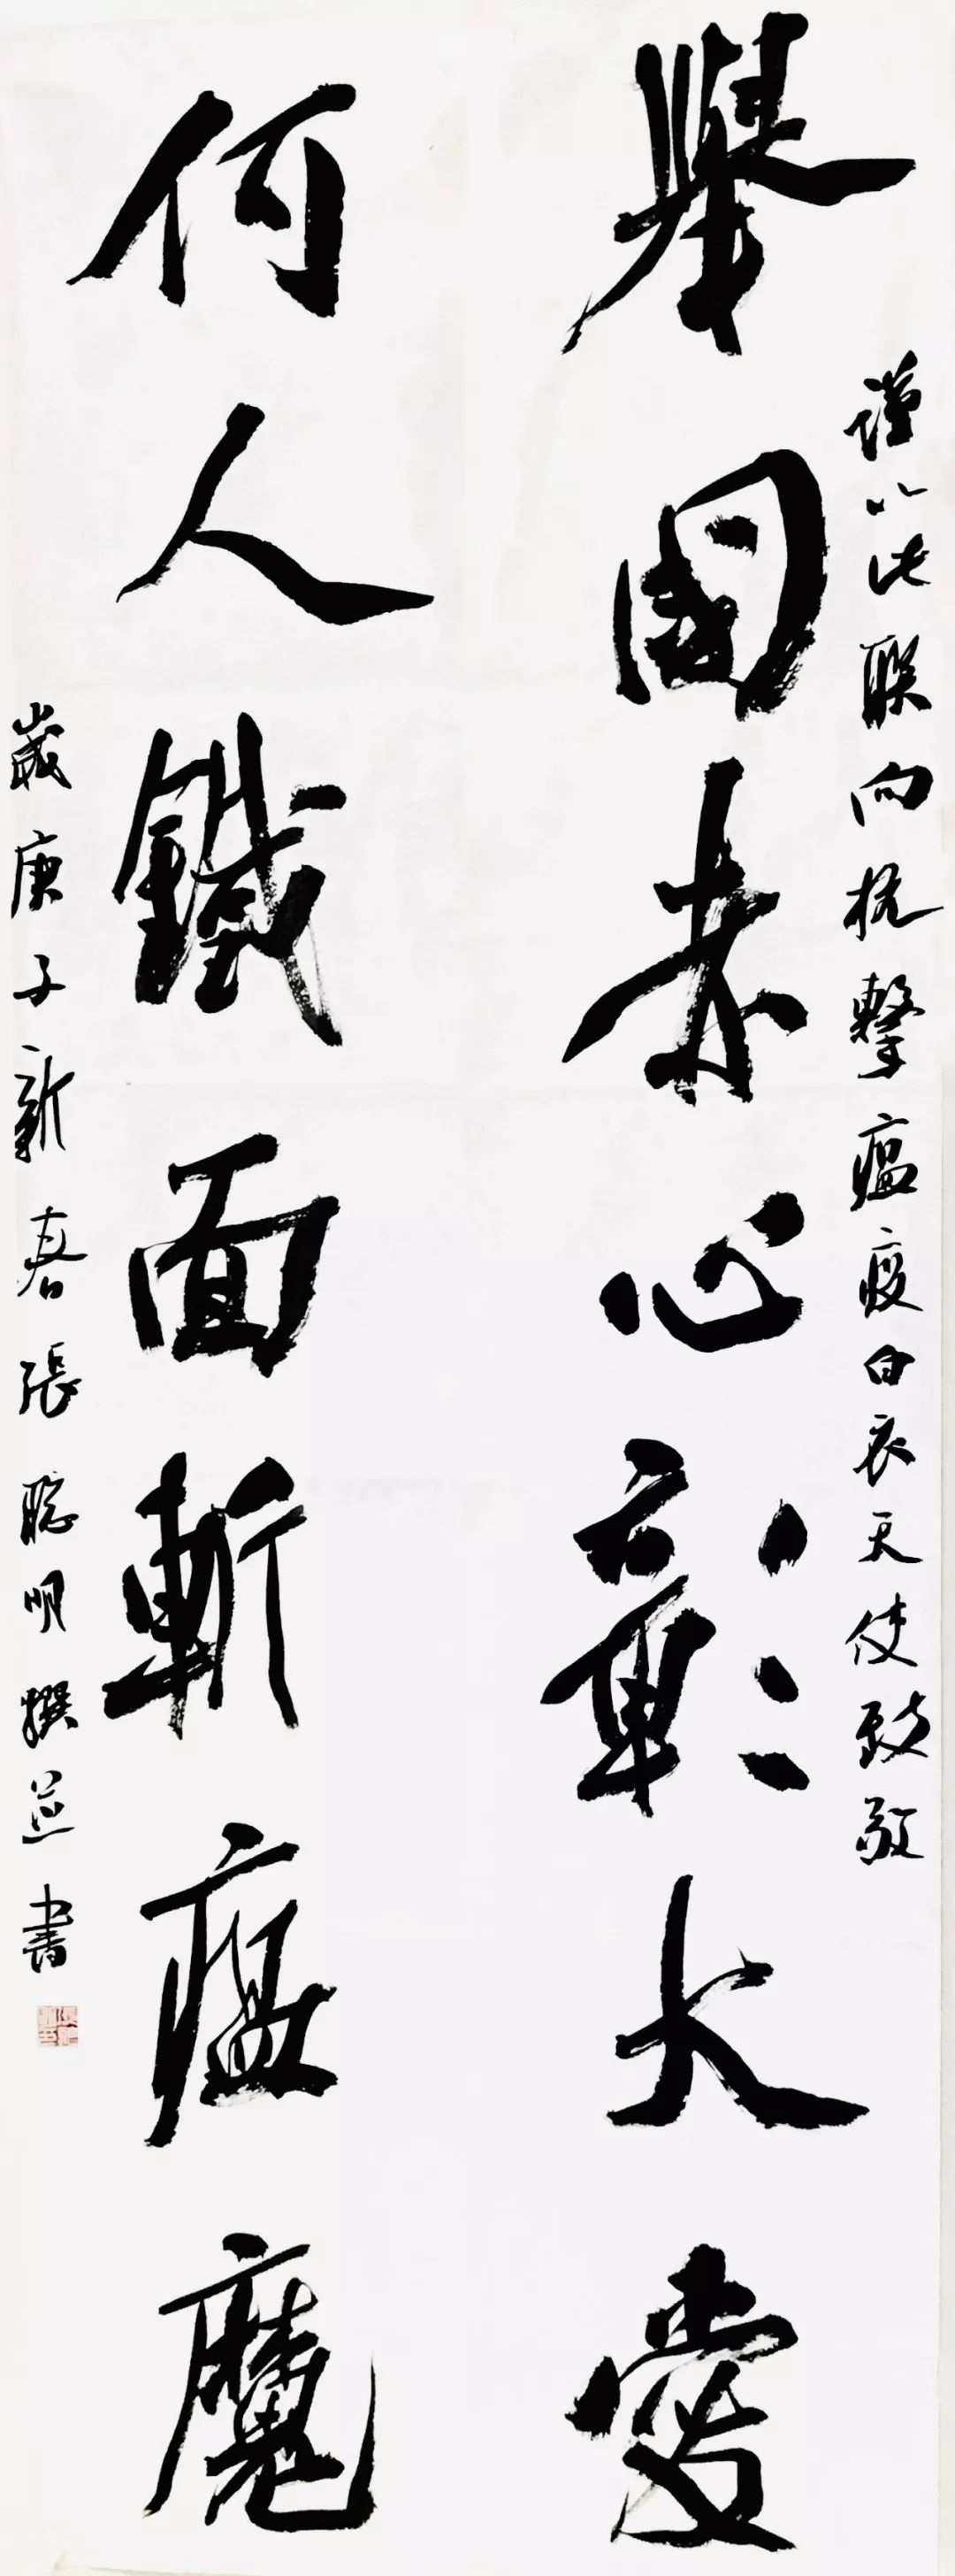 謹以此联向抗擊瘟疫白衣天使致敬
舉國赤心彰大愛
何人鐵面斬瘟魔
歲庚子新春張聪明撰並書